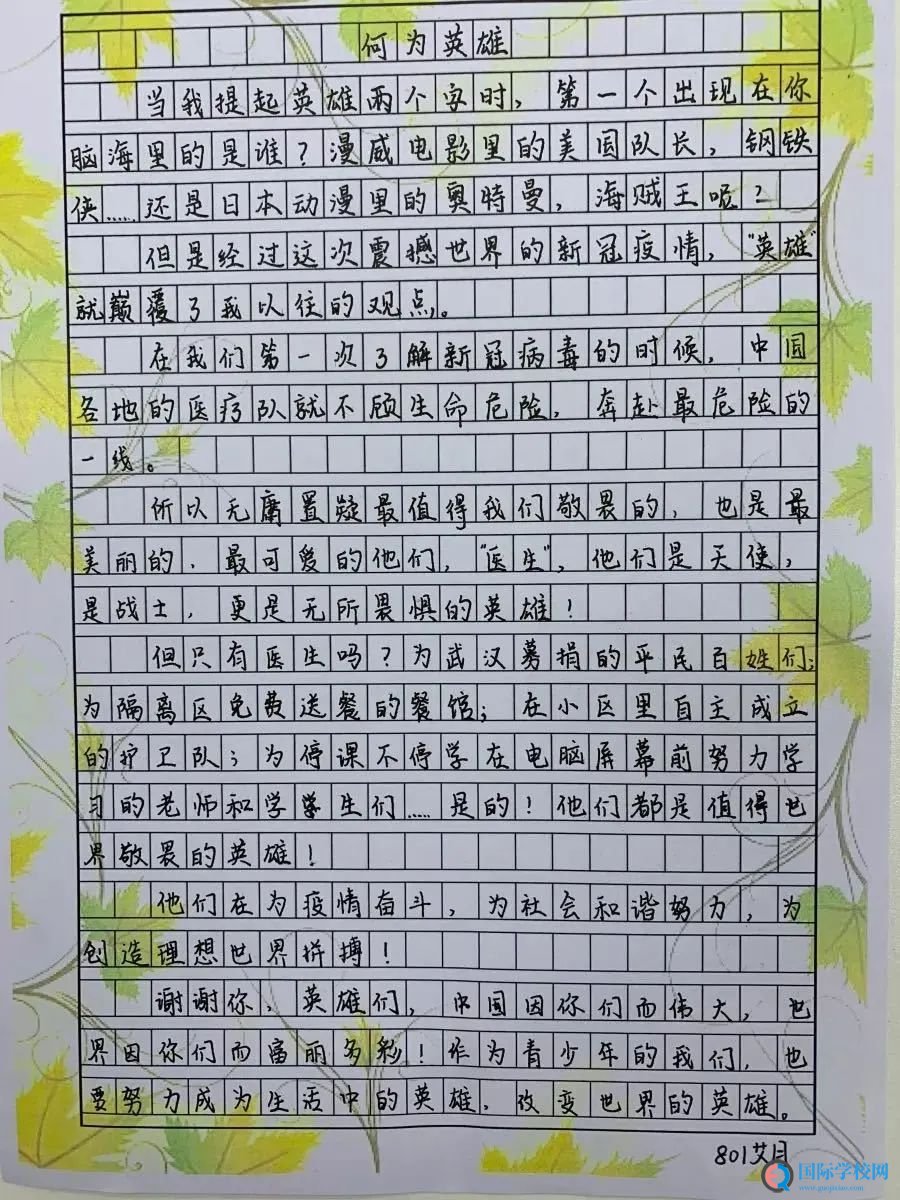 何为英雄
当我提起英雄两个字时，第一个出现在你
脑海里的是谁？漫威电影里的美国队长，钢铁
侠……还是日本动漫里的奥特曼，海贼王呢？
但是经过这次震撼世界的新冠疫情，“英雄”
就巅覆了我以往的观点。
在我们第一次了解新冠病毒的时候，中国
各地的医疗队就不顾生命危险，奔赴最危险的
一线。
所以无庸置疑最值得我们敬畏的，也是最
美丽的，最可爱的他们，“医生”，他们是天使，
是战士，更是无所畏惧的英雄！
但只有医生吗？为武汉募捐的平民百姓们；
为隔离区免费送餐的餐馆；在小区里自主成立
的护卫队；为停课不停学在电脑屏幕前努力学
习的老师和学生们……是的！他们都是值得世
界敬畏的英雄！
他们在为疫情奋斗，为社会和谐努力，为
创造理想世界拼搏！
谢谢你，英雄们，中国因你们而伟大，世
界因你们而富丽多彩！作为青少年的我们，也
要努力成为生活中的英雄，改变世界的英雄。
801艾月
国际学校网
www.guojixiao.com